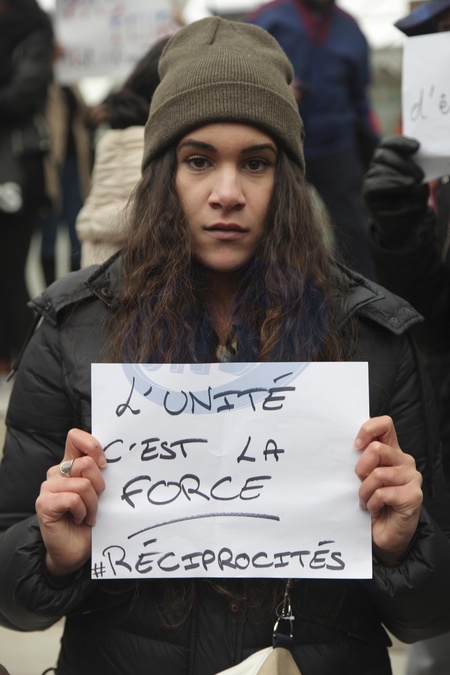 L'UNITÉ
C'EST LA
FORCE
#RÉCIPROCITÉS
d'é